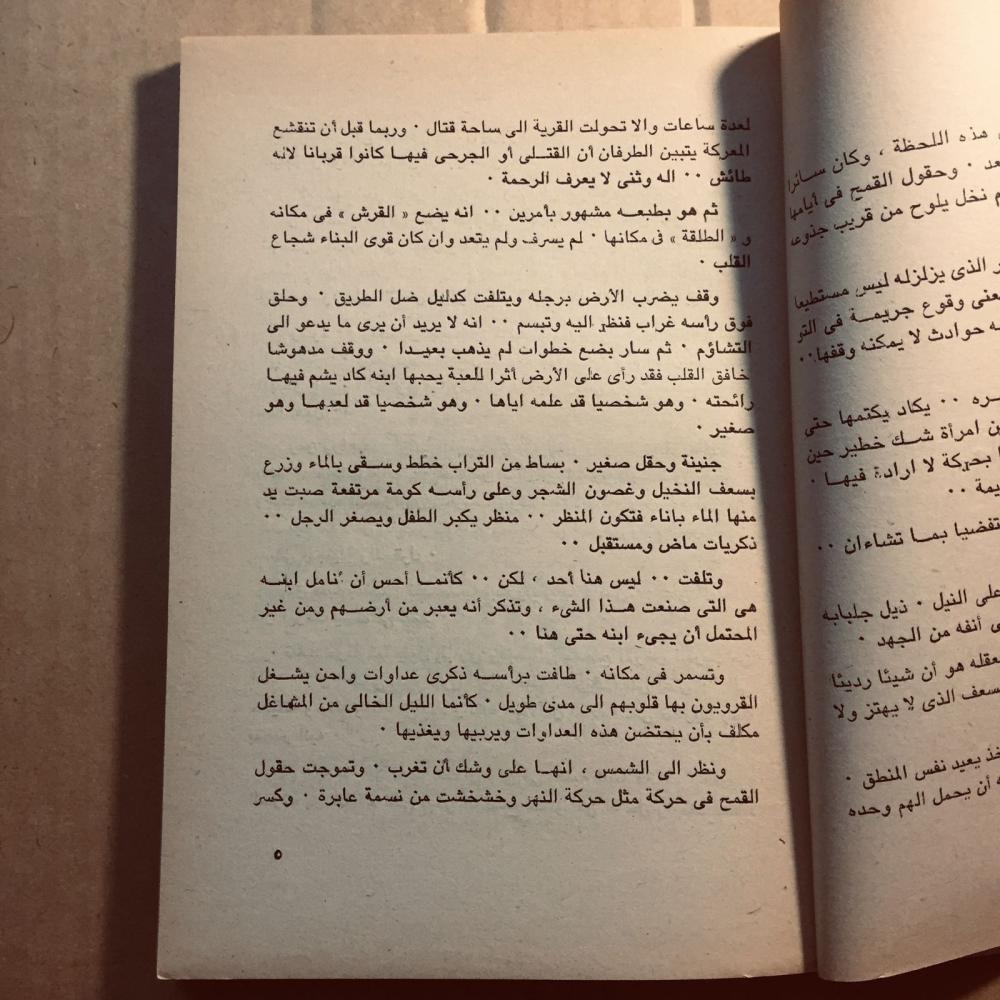 هذه اللحظة ، وكان سائرا
وحقول القمح فى أيامها
نخل يلوح من قريب جذوعه
الذى يزلزله ليس مستطيعا
وقوع جريمــة فى التو
حوادث لا يمكنه وقفها٠٠
٠٠ يكاد يكتمها حتى
امرأة شــك خطير حين
بحركة لا ارادة فيهــا ٠
تفضيا بمــا تشاءان ٠٠
على النيل ٠ ذيل جلبابه
أنفه من الجهد ٠
هو أن شيئا رديئا
الذى لا يهتز ولا
يعيد نفس المنطق ٠
أن يحمل الهم وحده
لعدة ساعات والا تحولت القرية الى ساحة قتال ٠ وربما قبل أن تنقشع
المعركة يتبين الطرفان أن القتــلى أو الجرحى فيهــا كانوا قربانا لاله
طائش ٠٠ اله وثنى لا يعرف الرحمة ٠
ثم هو بطبعــه مشهور بأمرين ٠٠ انه يضع « القرش » فى مكانه
و « الطلقة » فى مكانها ٠ لم يسرف ولم يتعد وان كان قوى البناء شجاع
القلب ٠
وقف يضرب الأرض برجله ويتلفت كدليل ضل الطريق ٠ وحلق
فوق رأسه غراب فنظر اليه وتبسم ٠٠ انه لا يريد أن يرى ما يدعو الى
التشاؤم ٠ ثم سار بضع خطوات لم يذهب بعيــدا ٠ ووقف مدهوشا
خافق القلب فقد رأى على الأرض أثرا للعبة يحبها ابنه كاد يشم فيهــا
رائحته ٠ وهو شخصيا قد علمه اياها ٠ وهو شخصيا قد لعبهــا وهو
صغير ٠
جنينة وحقل صغير ٠ بساط من التراب خطط وســقى بالماء وزرع
بسعف النخيل وغصون الشجر وعلى رأســه كومة مرتفعة صبت يد
منها الماء باناء فتكون المنظر ٠٠ منظر يكبر الطفل ويصغر الرجل ٠٠
ذكريات ماض ومستقبل ٠٠
وتلفت ٠٠ ليس هنا أحد ، لكن ٠٠ كأنمــا أحس أن أنامل ابنــه
هى التى صنعت هــذا الشىء ، وتذكر أنه يعبر من أرضــهم ومن غير
المحتمل أن يجىء ابنه حتى هنا ٠٠
وتسمر فى مكانه ٠ طافت برأســه ذكرى عداوات واحن يشــغل
القرويون بها قلوبهم الى مدى طويل ٠ كأنما الليل الخالى من المشاغل
مكلف بأن يحتضن هذه العداوات ويربيها ويغذيها ٠
ونظر الى الشمس ، انهــا على وشك أن تغرب ٠ وتموجت حقول
القمح فى حركة مثل حركة النهر وخشخشت من نسمة عابرة ٠ وكسر
٥